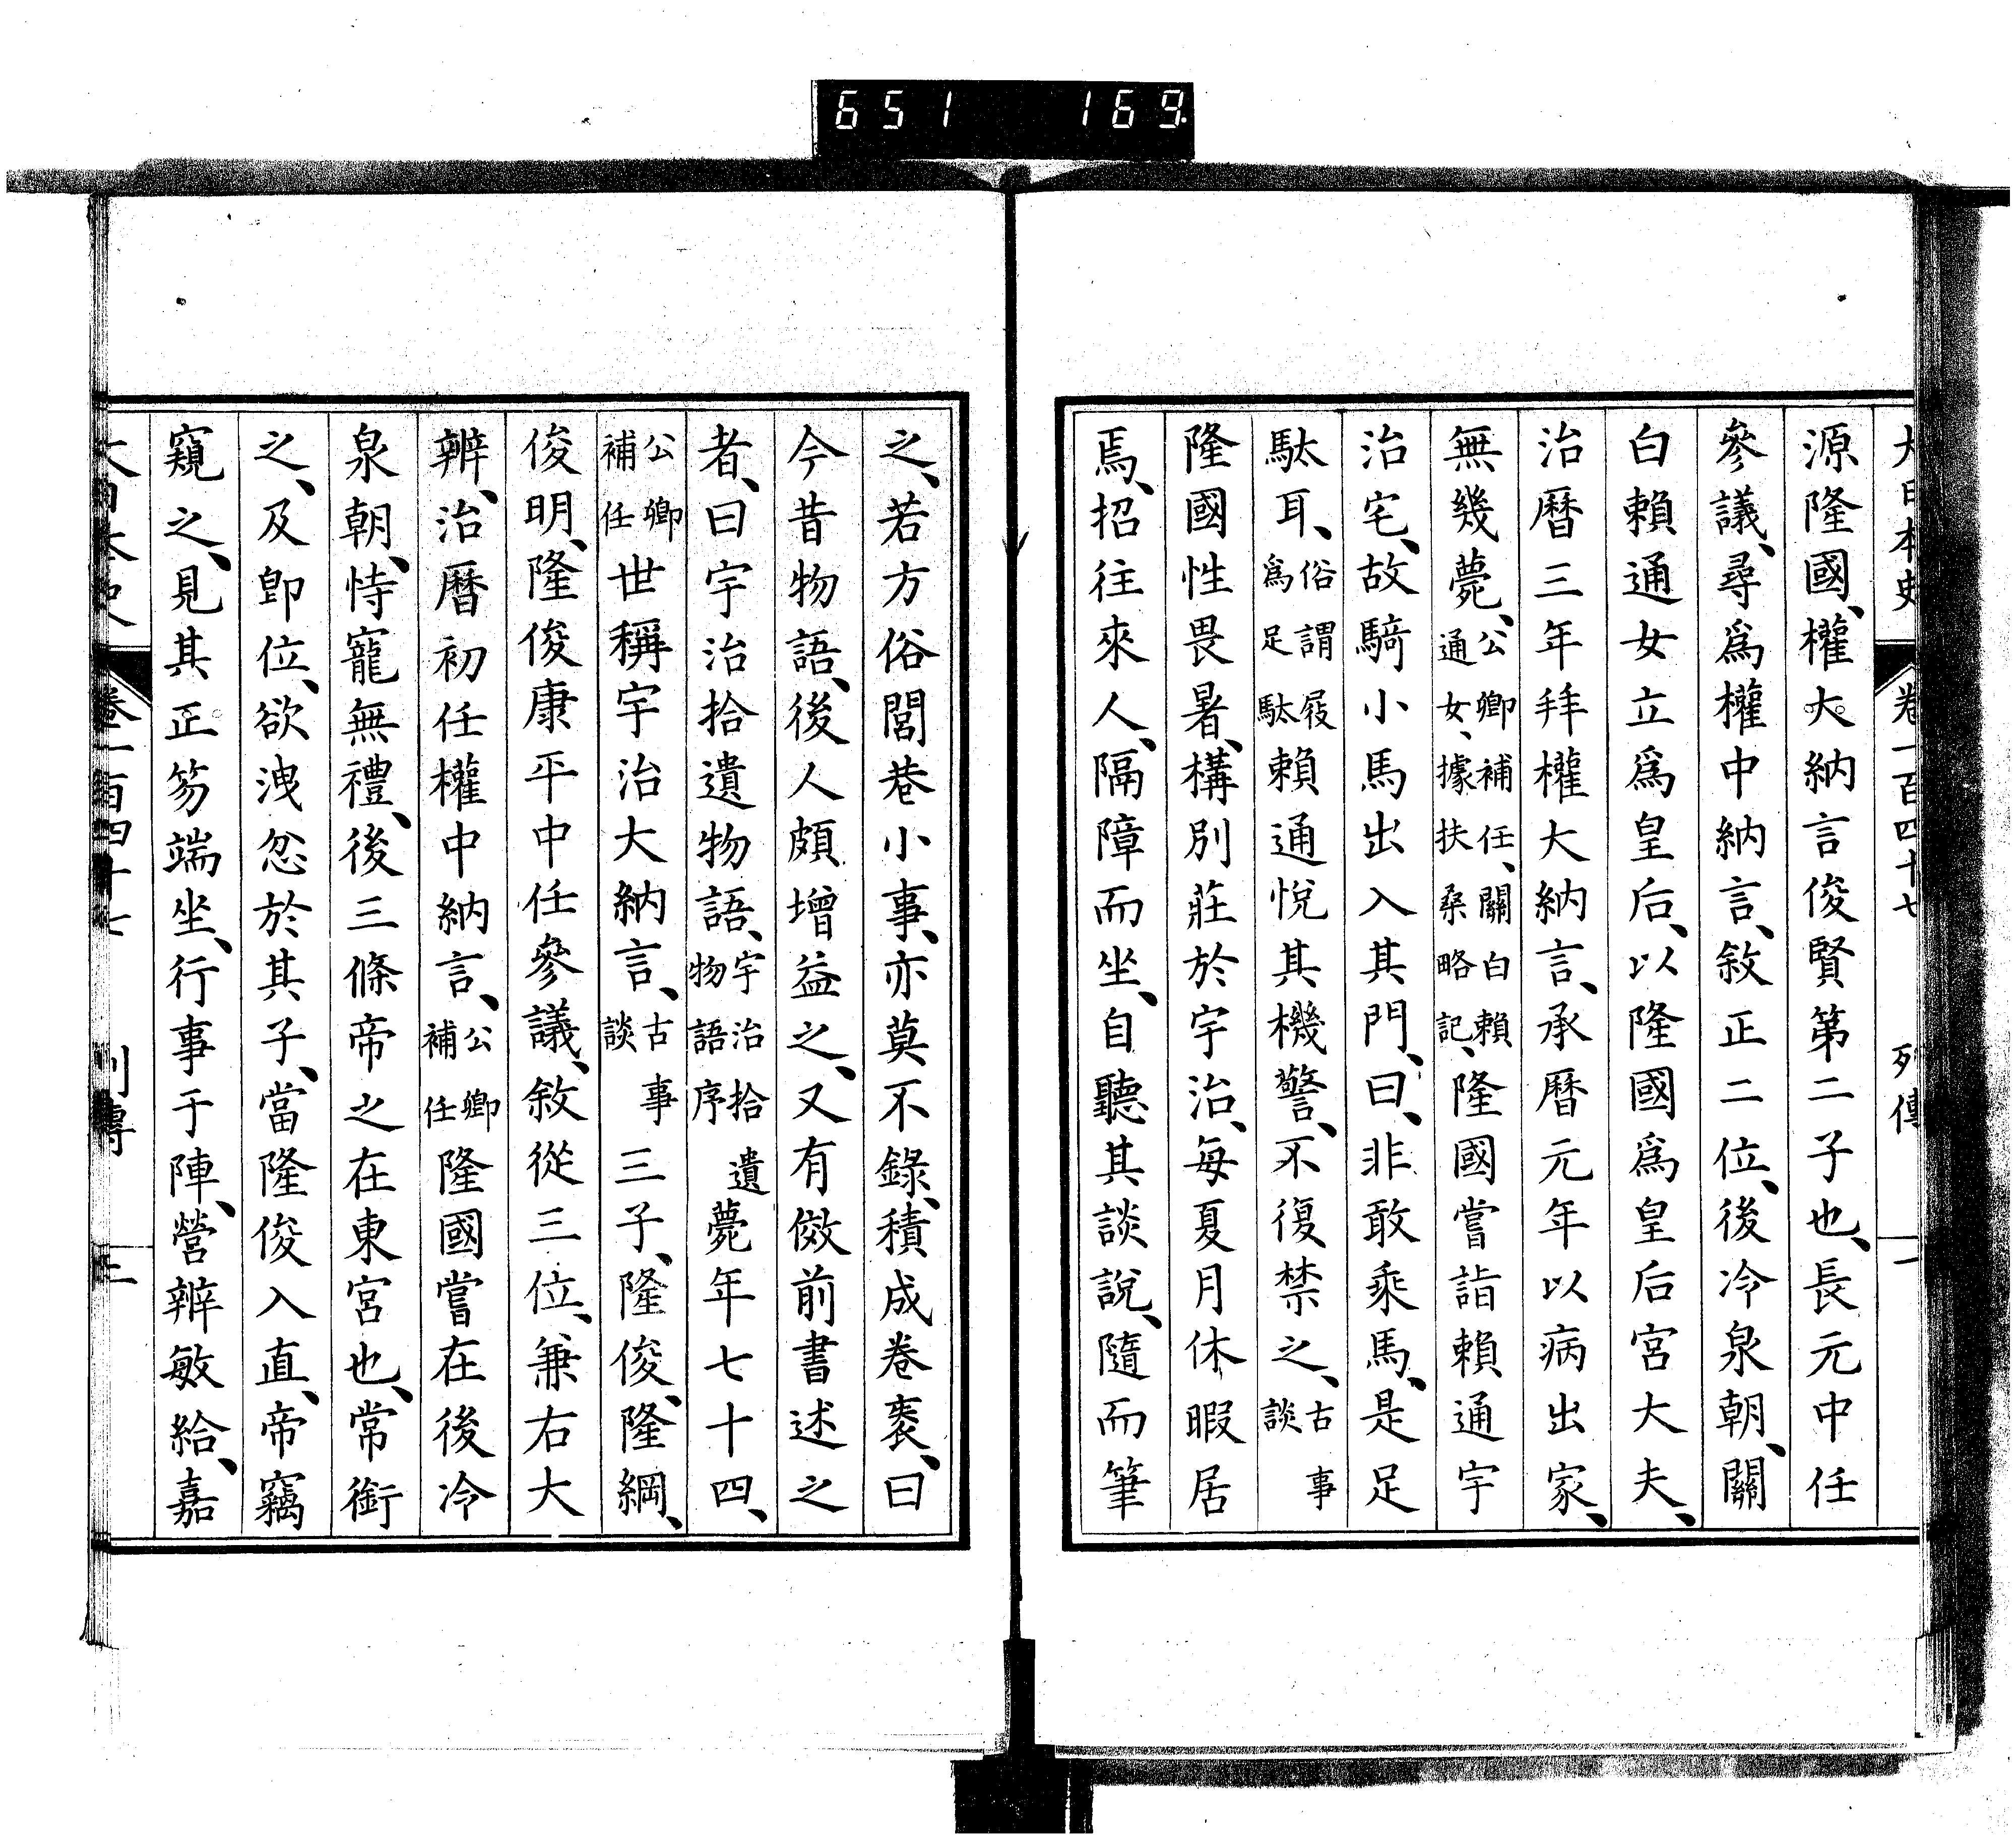 651 169
大日本史 卷一百四十七 列傳 二
源隆國、權大納言俊賢第二子也、長元中任
參議、尋爲權中納言、敘正二位、後冷泉朝、關
白賴通女立爲皇后、以隆國爲皇后宮大夫、
治曆三年拜權大納言、承曆元年以病出家、
無幾薨、公卿補任、關白賴通女、據扶桑略記、隆國嘗詣賴通宇
治宅、故騎小馬出入其門、曰、非敢乘馬、是足
駄耳、俗謂屐爲足駄賴通悅其機警、不復禁之、古事談
隆國性畏暑、構別莊於宇治、每夏月休暇居
焉、招往來人、隔障而坐、自聽其談說、隨而筆
之、若方俗閭巷小事、亦莫不錄、積成卷袠、曰
今昔物語、後人頗增益之、又有傚前書述之
者、曰宇治拾遺物語、宇治拾遺物語序薨年七十四、
公卿補任世稱宇治大納言、古事談三子、隆俊、隆綱、
俊明、隆俊康平中任參議、敘從三位、兼右大
辨、治曆初任權中納言、公卿補任隆國嘗在後冷
泉朝、恃寵無禮、後三條帝之在東宮也、常銜
之、及卽位、欲洩忿於其子、當隆俊入直、帝竊
窺之、見其正笏端坐、行事于陣、營辨敏給、嘉
大日本史 卷一百四十七 列傳 三